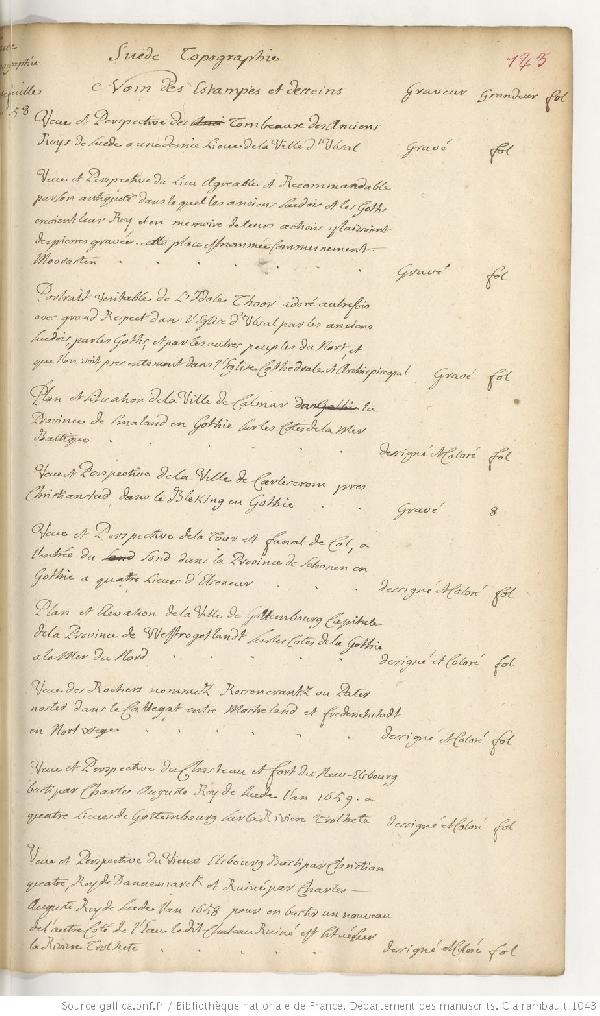 Suede Topographie 143
Nom des Estampes et desseins Graveur Grandeur fol
Veue et Perspective des Tombeaux des Anciens
Roys de Suede a une demie Lieue de la Ville d'Upsal Gravé fol
Veue et Perspective du Lieu Agreable et Recommandable
par son antiquité dans le quel les anciens Suedois et les Goths
creoient leur Roy et en memoire de leurs actions
des pierres gravées place est nommée Communement
Moorasten Gravé fol
Portrait veritable de L'Idole Thoor adoré autrefois
avec grand Respect dans l'Eglise d'Upsal par les anciens
Suedois, par les Goths, et par les autres peuples du Nort, et
que l'on voit presentement dans l'Eglise Cathedrale et Archiepiscopal Gravé fol
Plan et Situation de la Ville de Calmar la
Province de Smaland en Gothie sur les Costes de la Mer
Baltique dessigné et Coloré fol
Veue et Perspective de la Ville de Carlescroon pres
Christianstad, dans le Bleking en Gothie Gravé 8
Veue et Perspective de la Tour et fanal de Col, a
l'entrée du Sond dans la Province de Schonen en
Gothie a quatre Lieues d'Elseneur dessigné et Coloré fol
Plan et Elevation de la Ville de Gottembourg Capitale
de la Province de Westrogotlandt sur les Costes de la Gothie
a la Mer du Nord dessigné et Coloré fol
Veue des Rochers nommez Rosencrantz ou Pater
nostes dans le Cattegat entre et Frederichstadt
en Nortwege dessigné et Coloré fol
Veue et Perspective du Chasteau et fort du Neuw-Elsbourg
basti par Charles Auguste Roy de Suede l'an 1659. a
quatre Lieues de Gottembourg sur la Riviere Trolhete dessigné et Coloré fol
Veue et Perspective du Vieux Elsbourg Basti par Christian
quatre, Roy de Dannemarck et Ruiné par Charles
Auguste Roy de Suede l'an 1658 pour en bastir un nouveau
de l'autre Costé de l'Eau le dit Chasteau Ruiné est situé sur
la Riviere Trolhete dessigné et Coloré fol
Source gallica.bnf.fr / Bibliothèque nationale de France. Département des manuscrits. Clairambault 1043